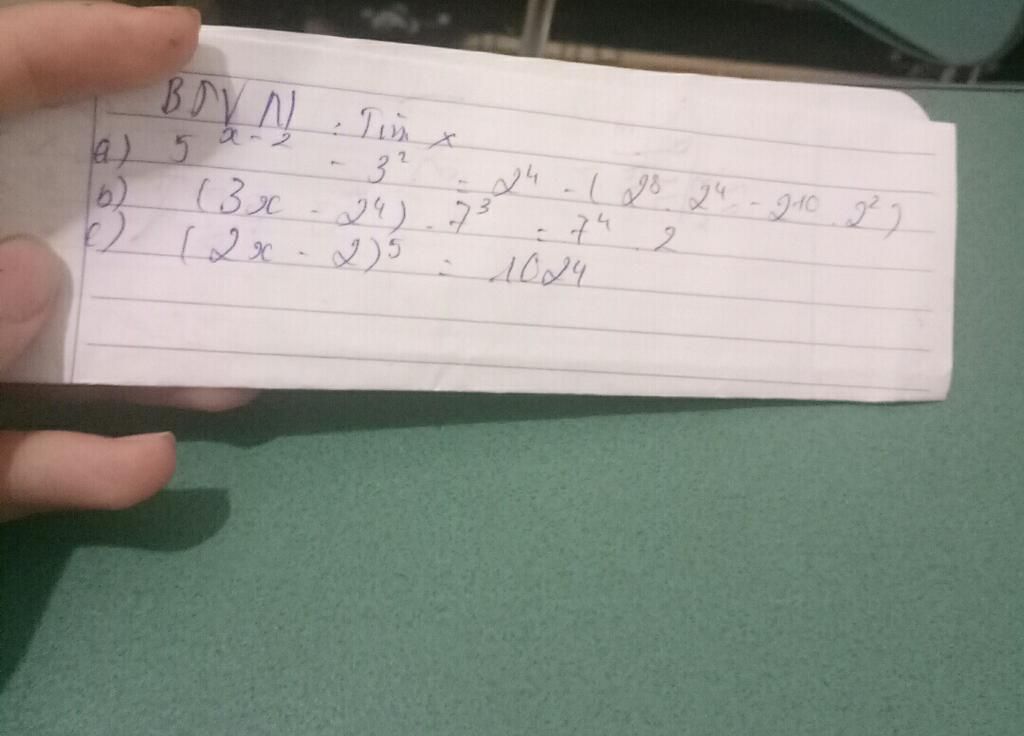 BTVN : Tìm x
a) 5^{x-2} - 3² = 2⁴ - ( 2⁸ . 2⁴ - 2¹⁰ . 2² )
b) (3x - 2⁴) . 7³ = 7⁴ . 2
c) (2x - 2)⁵ = 1024